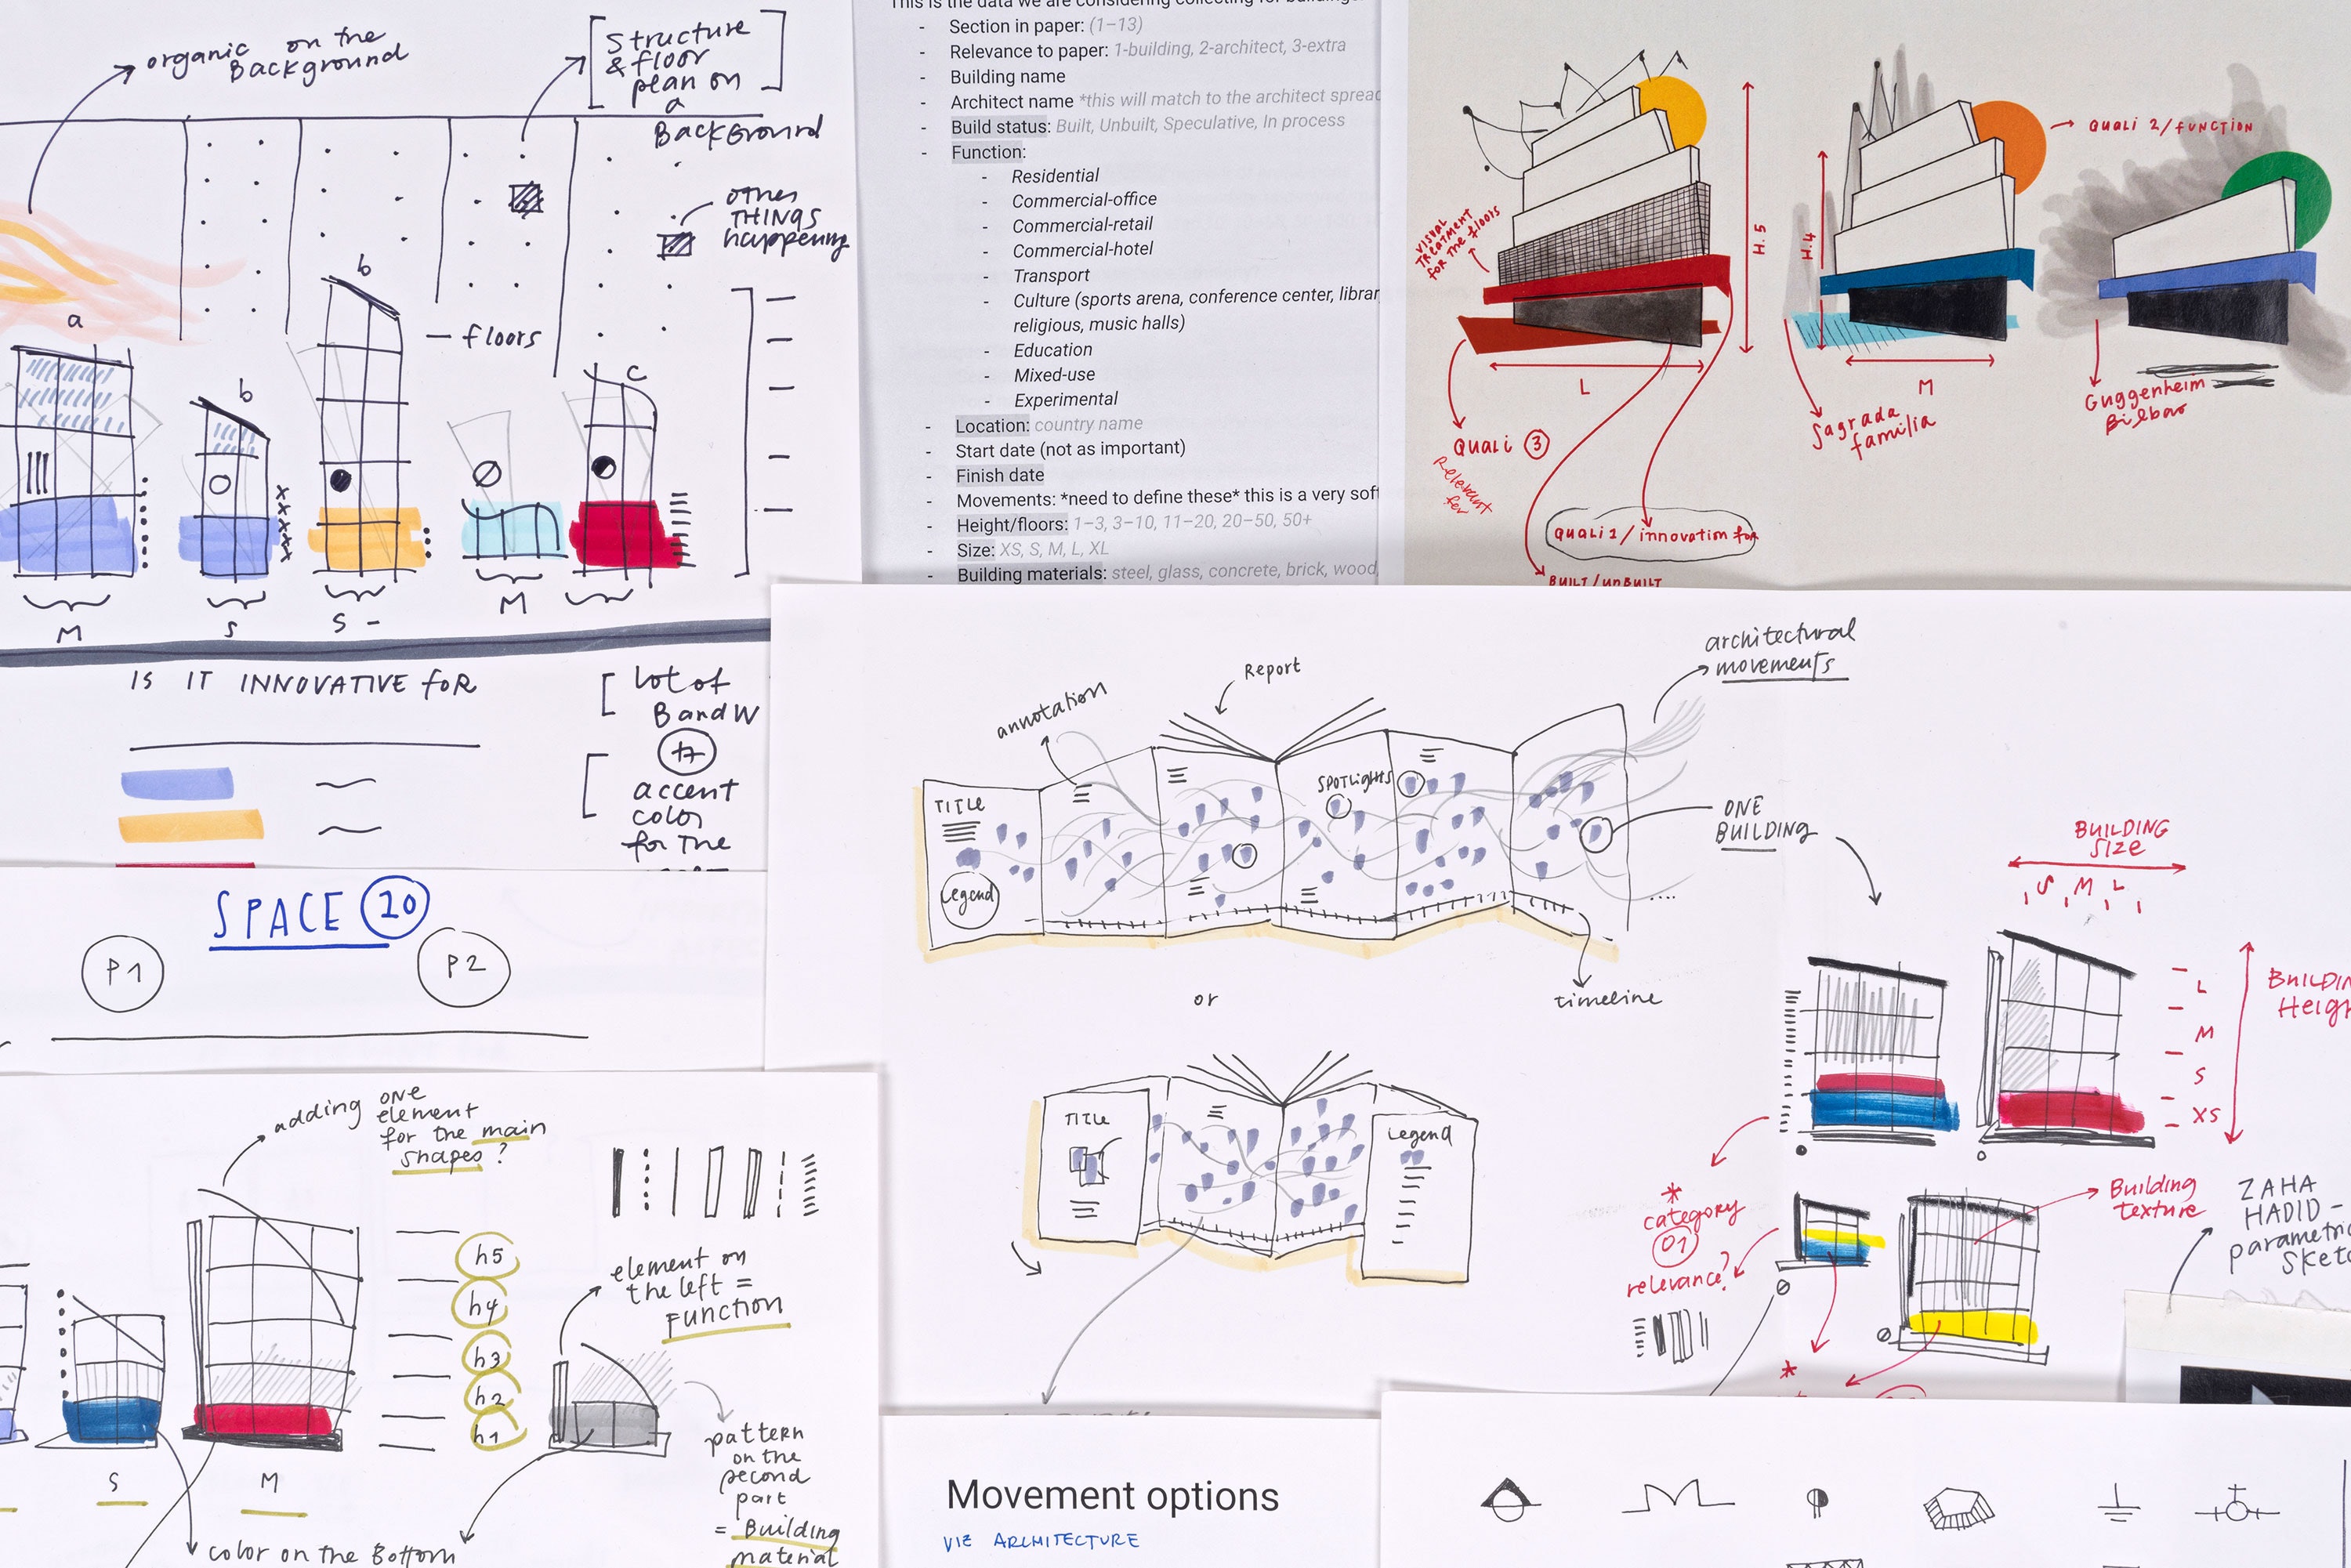 organic on the
Background
[structure
& floor
plan on
a
Background]
other
THINGS
happening
a
b
b
c
— floors
M
S
S -
M
IS IT INNOVATIVE FOR
[ lot of
B and W
[ accent
color
for the
SPACE 10
P1
P2
adding one
element
for the main
shapes ?
h5
h4
h3
h2
h1
element on
the left =
FUNCTION
pattern
on the
second
part
= Building
material
S
M
color on the Bottom
This is the data we are considering collecting for buildings.
- Section in paper: (1–13)
- Relevance to paper: 1-building, 2-architect, 3-extra
- Building name
- Architect name *this will match to the architect spread
- Build status: Built, Unbuilt, Speculative, In process
- Function:
- Residential
- Commercial-office
- Commercial-retail
- Commercial-hotel
- Transport
- Culture (sports arena, conference center, librar
religious, music halls)
- Education
- Mixed-use
- Experimental
- Location: country name
- Start date (not as important)
- Finish date
- Movements: *need to define these* this is a very sof
- Height/floors: 1–3, 3–10, 11–20, 20–50, 50+
- Size: XS, S, M, L, XL
- Building materials: steel, glass, concrete, brick, wood,
VISUAL
TREATMENT
FOR THE floors
H.5
H.4
QUALI 2/FUNCTION
L
M
QUALI 3
Relevant
for
Sagrada
familia
Guggenheim
Bilbao
QUALI 1/ innovation for
BUILT/UNBUILT
annotation
Report
architectural
movements
TITLE
Legend
SPOTLIGHTS
ONE
BUILDING
....
timeline
or
TITLE
Legend
BUILDING
SIZE
S M L
BUILDIN
Heigh
L
M
S
XS
*
category
01
relevance?
Building
texture
*
ZAHA
HADID -
parametric
Sketc
Movement options
VIZ ARCHITECTURE